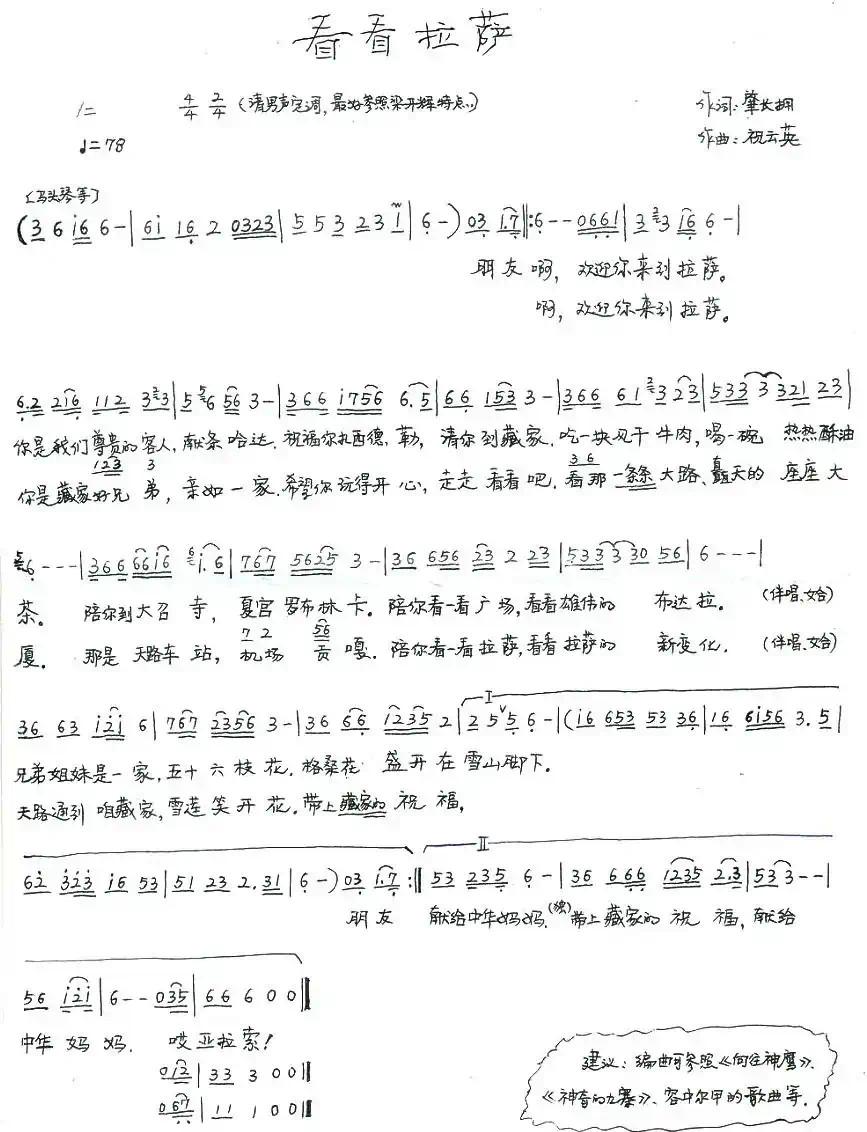 看看拉萨
1= 4/4 2/4 (清男声定调,最好参照梁开辉特点)
作词:肇长拥
♩=78
作曲:祝云英
〔马头琴等〕
(3 6 i6 6-|6i 16 2 0323|5 5 3 2 3 1|6-) 03 1.7‖:6-- 0661|3 3 16 6-|
朋友啊,欢迎你来到拉萨。
啊,欢迎你来到拉萨。
6.2 216 112 3 3|5 6 56 3-|366 1756 6.5|66 153 3-|366 61 323|533 3321 23|
你是我们尊贵的客人,献条哈达.祝福你扎西德,勒,请你到藏家.吃一块风干牛肉,喝一碗 热热酥油
123 3 36
你是藏家好兄弟,亲如一家.希望你玩得开心,走走看看吧.看那一条条大路、矗天的 座座大
6---|366 6616 1.6|767 5625 3-|36 656 23 2 23|533 330 56|6---|
茶。 陪你到大召寺,夏宫罗布林卡。陪你看一看广场,看看雄伟的 布达拉。 (伴唱、女合)
72 56
厦。 那是天路车站,机场 贡嘎.陪你看一看拉萨,看看拉萨的 新变化. (伴唱、女合)
I
36 63 i2i 6|767 2356 3-|36 66 1235 2|2 5 5 6-|(i6 653 53 36|16 6i56 3.5|
兄弟姐妹是一家,五十六枝花.格桑花 盛开在雪山脚下。
天路通到咱藏家,雪莲笑开花.带上藏家的祝福,
II
62 323 i6 53|51 23 2.31|6-) 03 1.7:‖53 235 6-|36 666 1235 2.3|533--|
朋友 献给中华妈妈.(独)带上藏家的祝福,献给
56 i2i|6-- 035|66 6 0 0‖
中华妈妈. 哎亚拉索!
012|33 3 0 0‖
067|11 1 0 0‖
建议:编曲可参照《向往神鹰》、
《神奇的九寨》、容中尔甲的歌曲等.